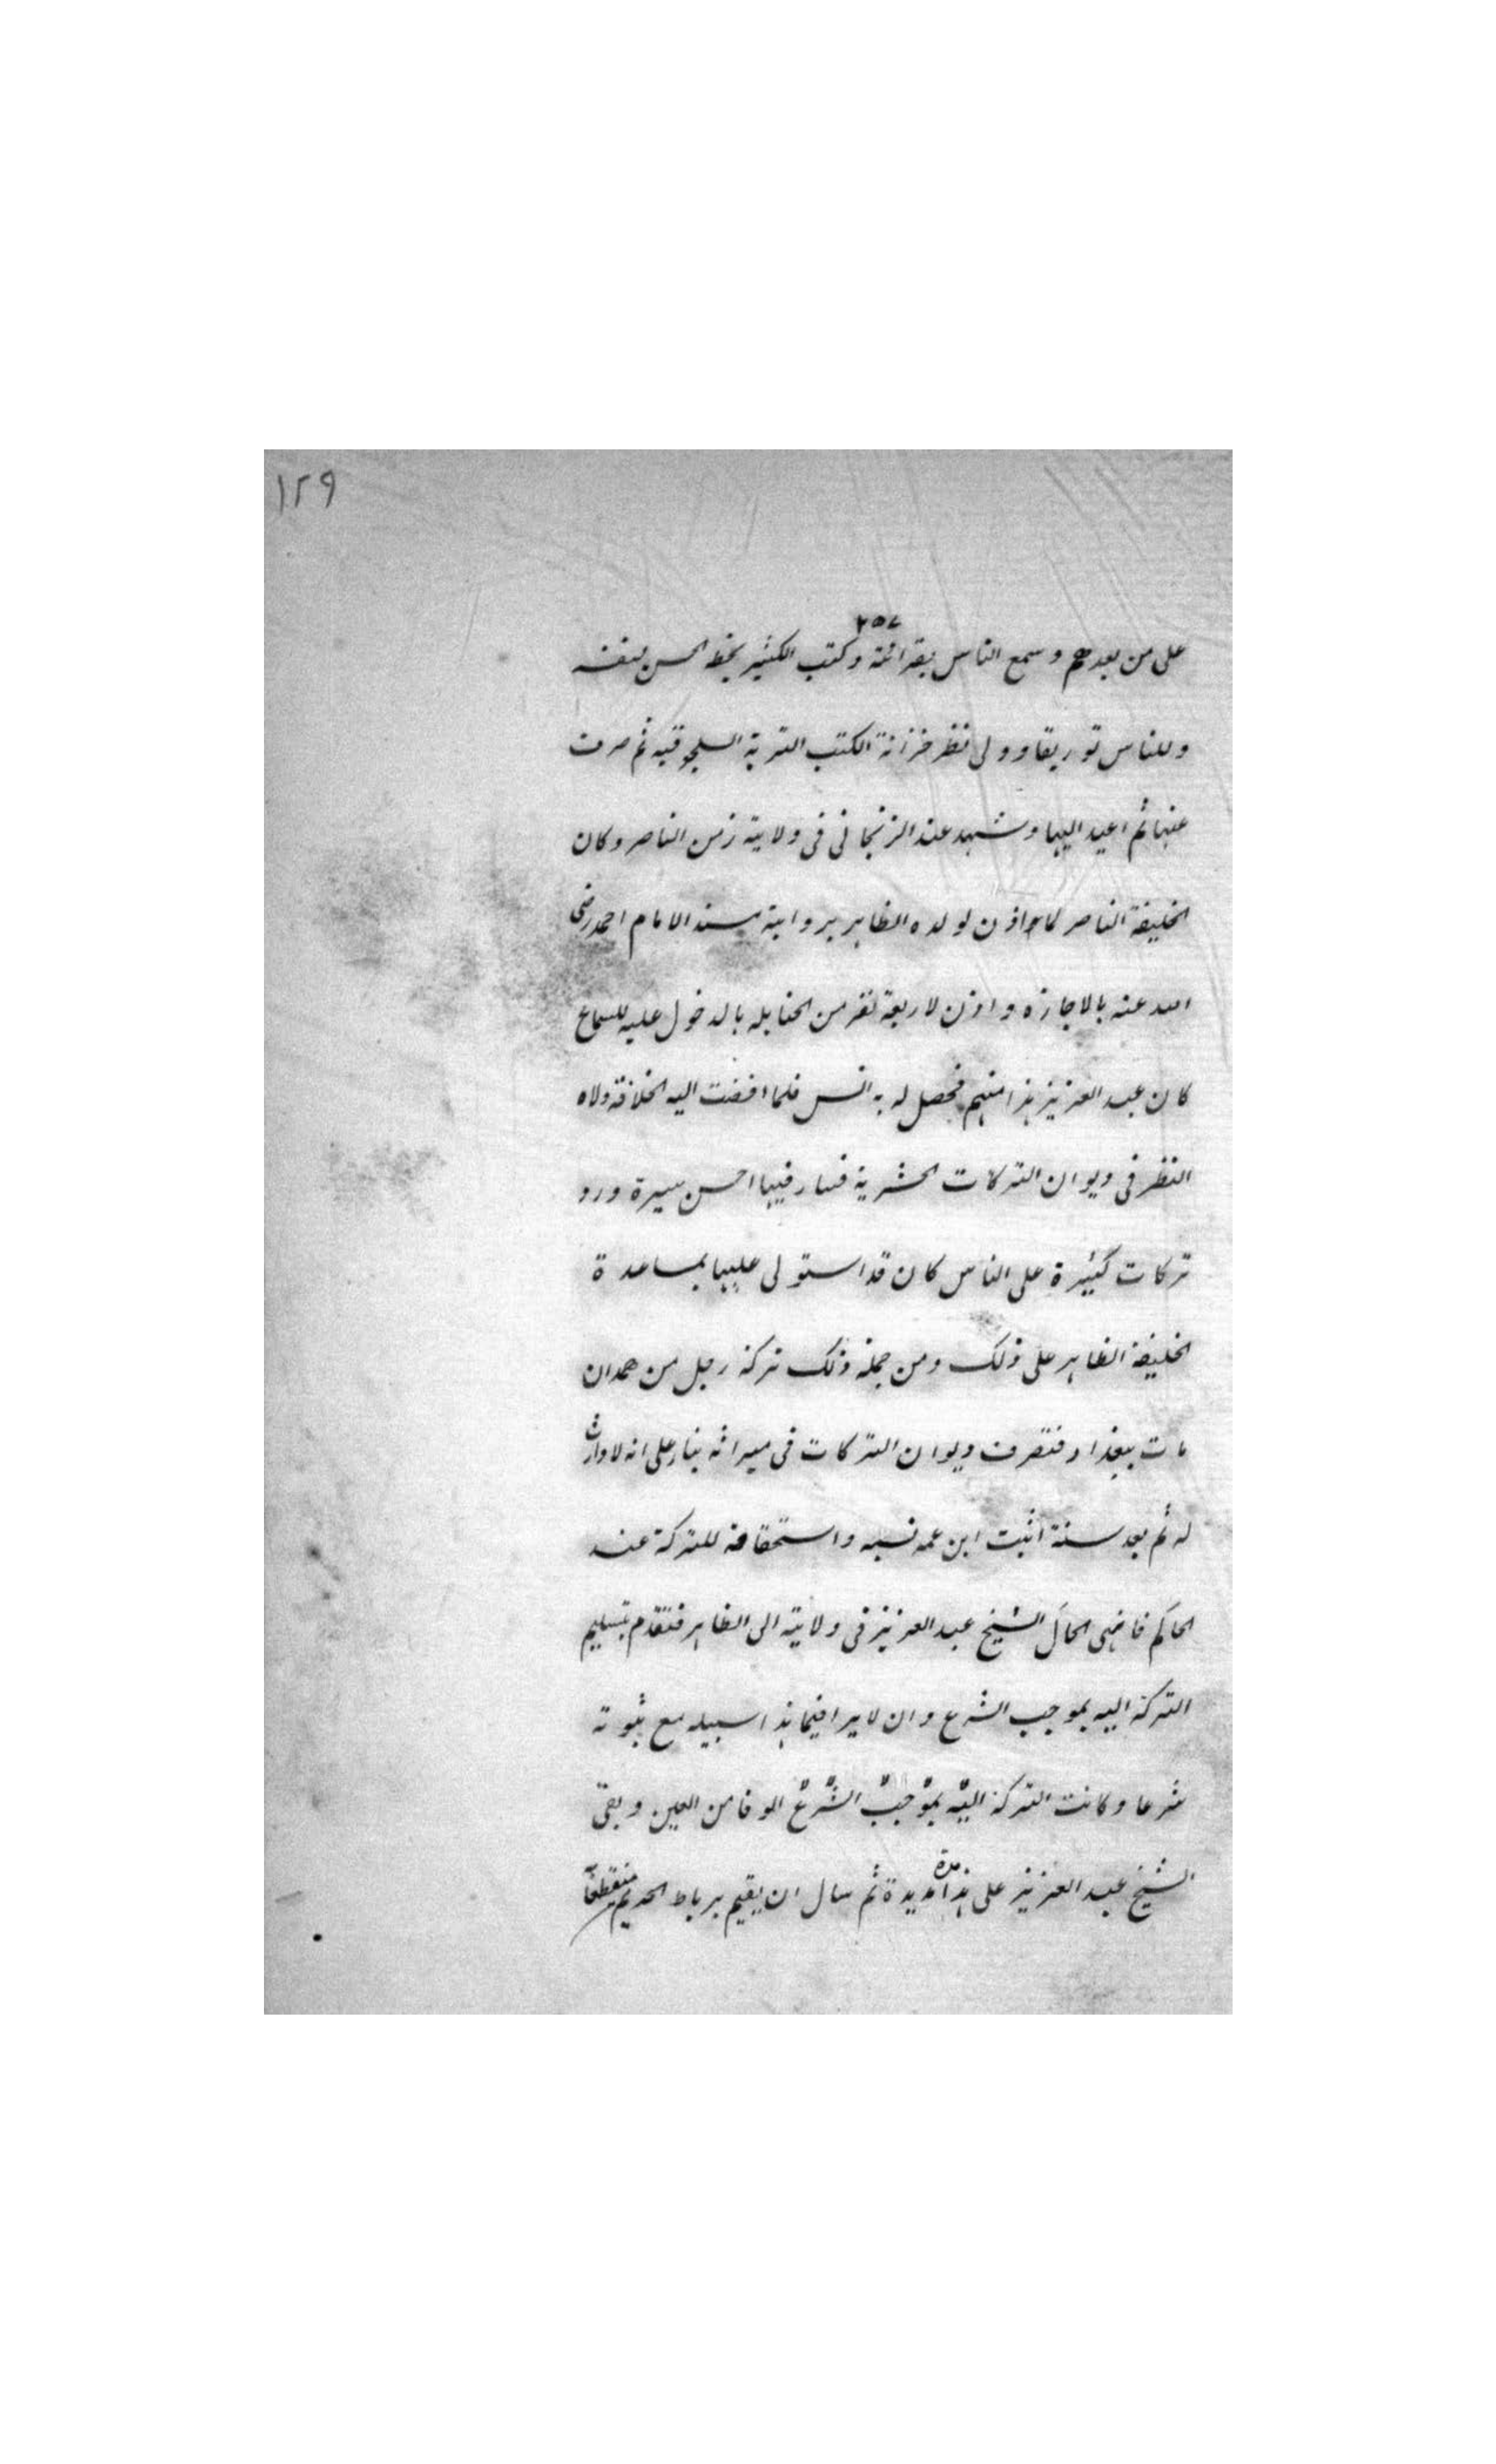 ١٢٩
٢٥٧
على من بعدهم وسمع الناس بقرائته وكتب الكثير بخط الحسن لنفسه
وللناس توريقا وولى نظر خزانة الكتب التربة السلجوقيه ثم صرف
عنها ثم اعيد اليها وشهد عند الزنجانى فى ولايته زمن الناصر وكان
الخليفة الناصر لما اذن لولده الظاهر برواية مسند الامام احمد رضى
الله عنه بالاجازه واذن لاربعة نفر من الحنابله بالدخول عليه للسماع
كان عبد العزيز هذا منهم فحصل له به انس فلما افضت اليه الخلافة ولاه
النظر فى ديوان التركات الحشرية فسار فيها احسن سيرة ورد
تركات كثيرة على الناس كان قد استولى عليها بمساعدة
الخليفة الظاهر على ذلك ومن جملة ذلك تركة رجل من همدان
مات ببغداد فتصرف ديوان التركات فى ميراثه بناء على انه لا وارث
له ثم بعد سنة اثبت ابن عمه نسبه واستحقاقه للتركة عند
الحاكم فانهى الحال الشيخ عبد العزيز فى ولايته الى الظاهر فتقدم بتسليم
التركة اليه بموجب الشرع وان لا يراجع فيما هذا سبيله مع ثبوته
شرعا وكانت التركة اليه بموجب الشرع الوفا من العين وبقى
الشيخ عبد العزيز على هذا مدة مديدة ثم سال ان يقيم برباط الحريم منقطعا